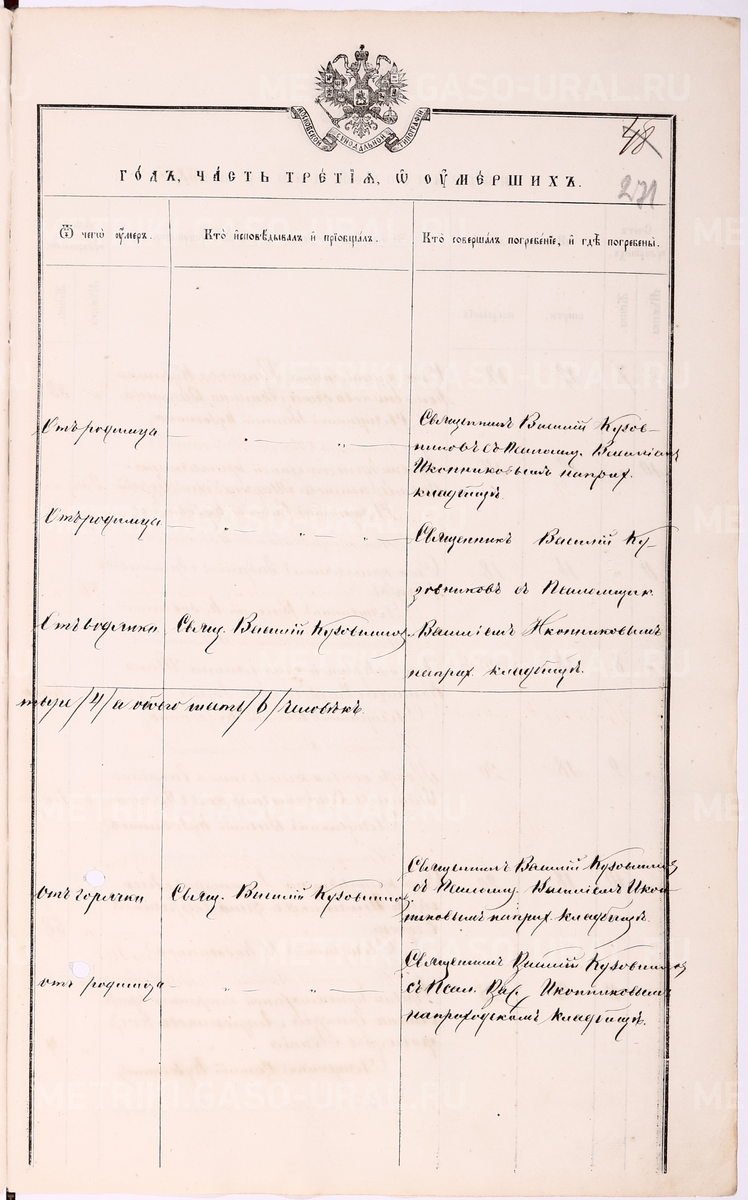 МОСКОВСКОЙ СѴНОДАЛЬНОЙ ТИПОГРАФІИ
48
271
ГОДЪ, ЧАСТЬ ТРЕТІЯ, Ѡ ОУМЕРШИХЪ.
Ѿ чегѡ оумеръ.
Кто исповѣдывалъ и пріобщалъ.
Кто совершалъ погребеніе, и гдѣ погребены.
Отъ родимца
Священникъ Василій Кузов-
никовъ съ Псаломщ. Василіемъ
Иконниковымъ на прих.
кладбищѣ.
Отъ родимца
Священникъ Василій Ку-
зовниковъ съ Псаломщик.
Отъ водянки
Свящ. Василій Кузовников.
Василіемъ Иконниковымъ
на прих. кладбищѣ.
тыре /4/ а обоего шесть /6/ человѣкъ.
отъ горячки
Свящ. Василій Кузовников.
Священникъ Василій Кузовников
съ Псаломщ. Василіемъ Икон-
никовымъ на прих. кладбищѣ.
отъ родимца
Священникъ Василій Кузовников
съ Псал. Вас. Иконниковымъ
на приходскомъ кладбищѣ.
METRIKI.GASO-URAL.RU